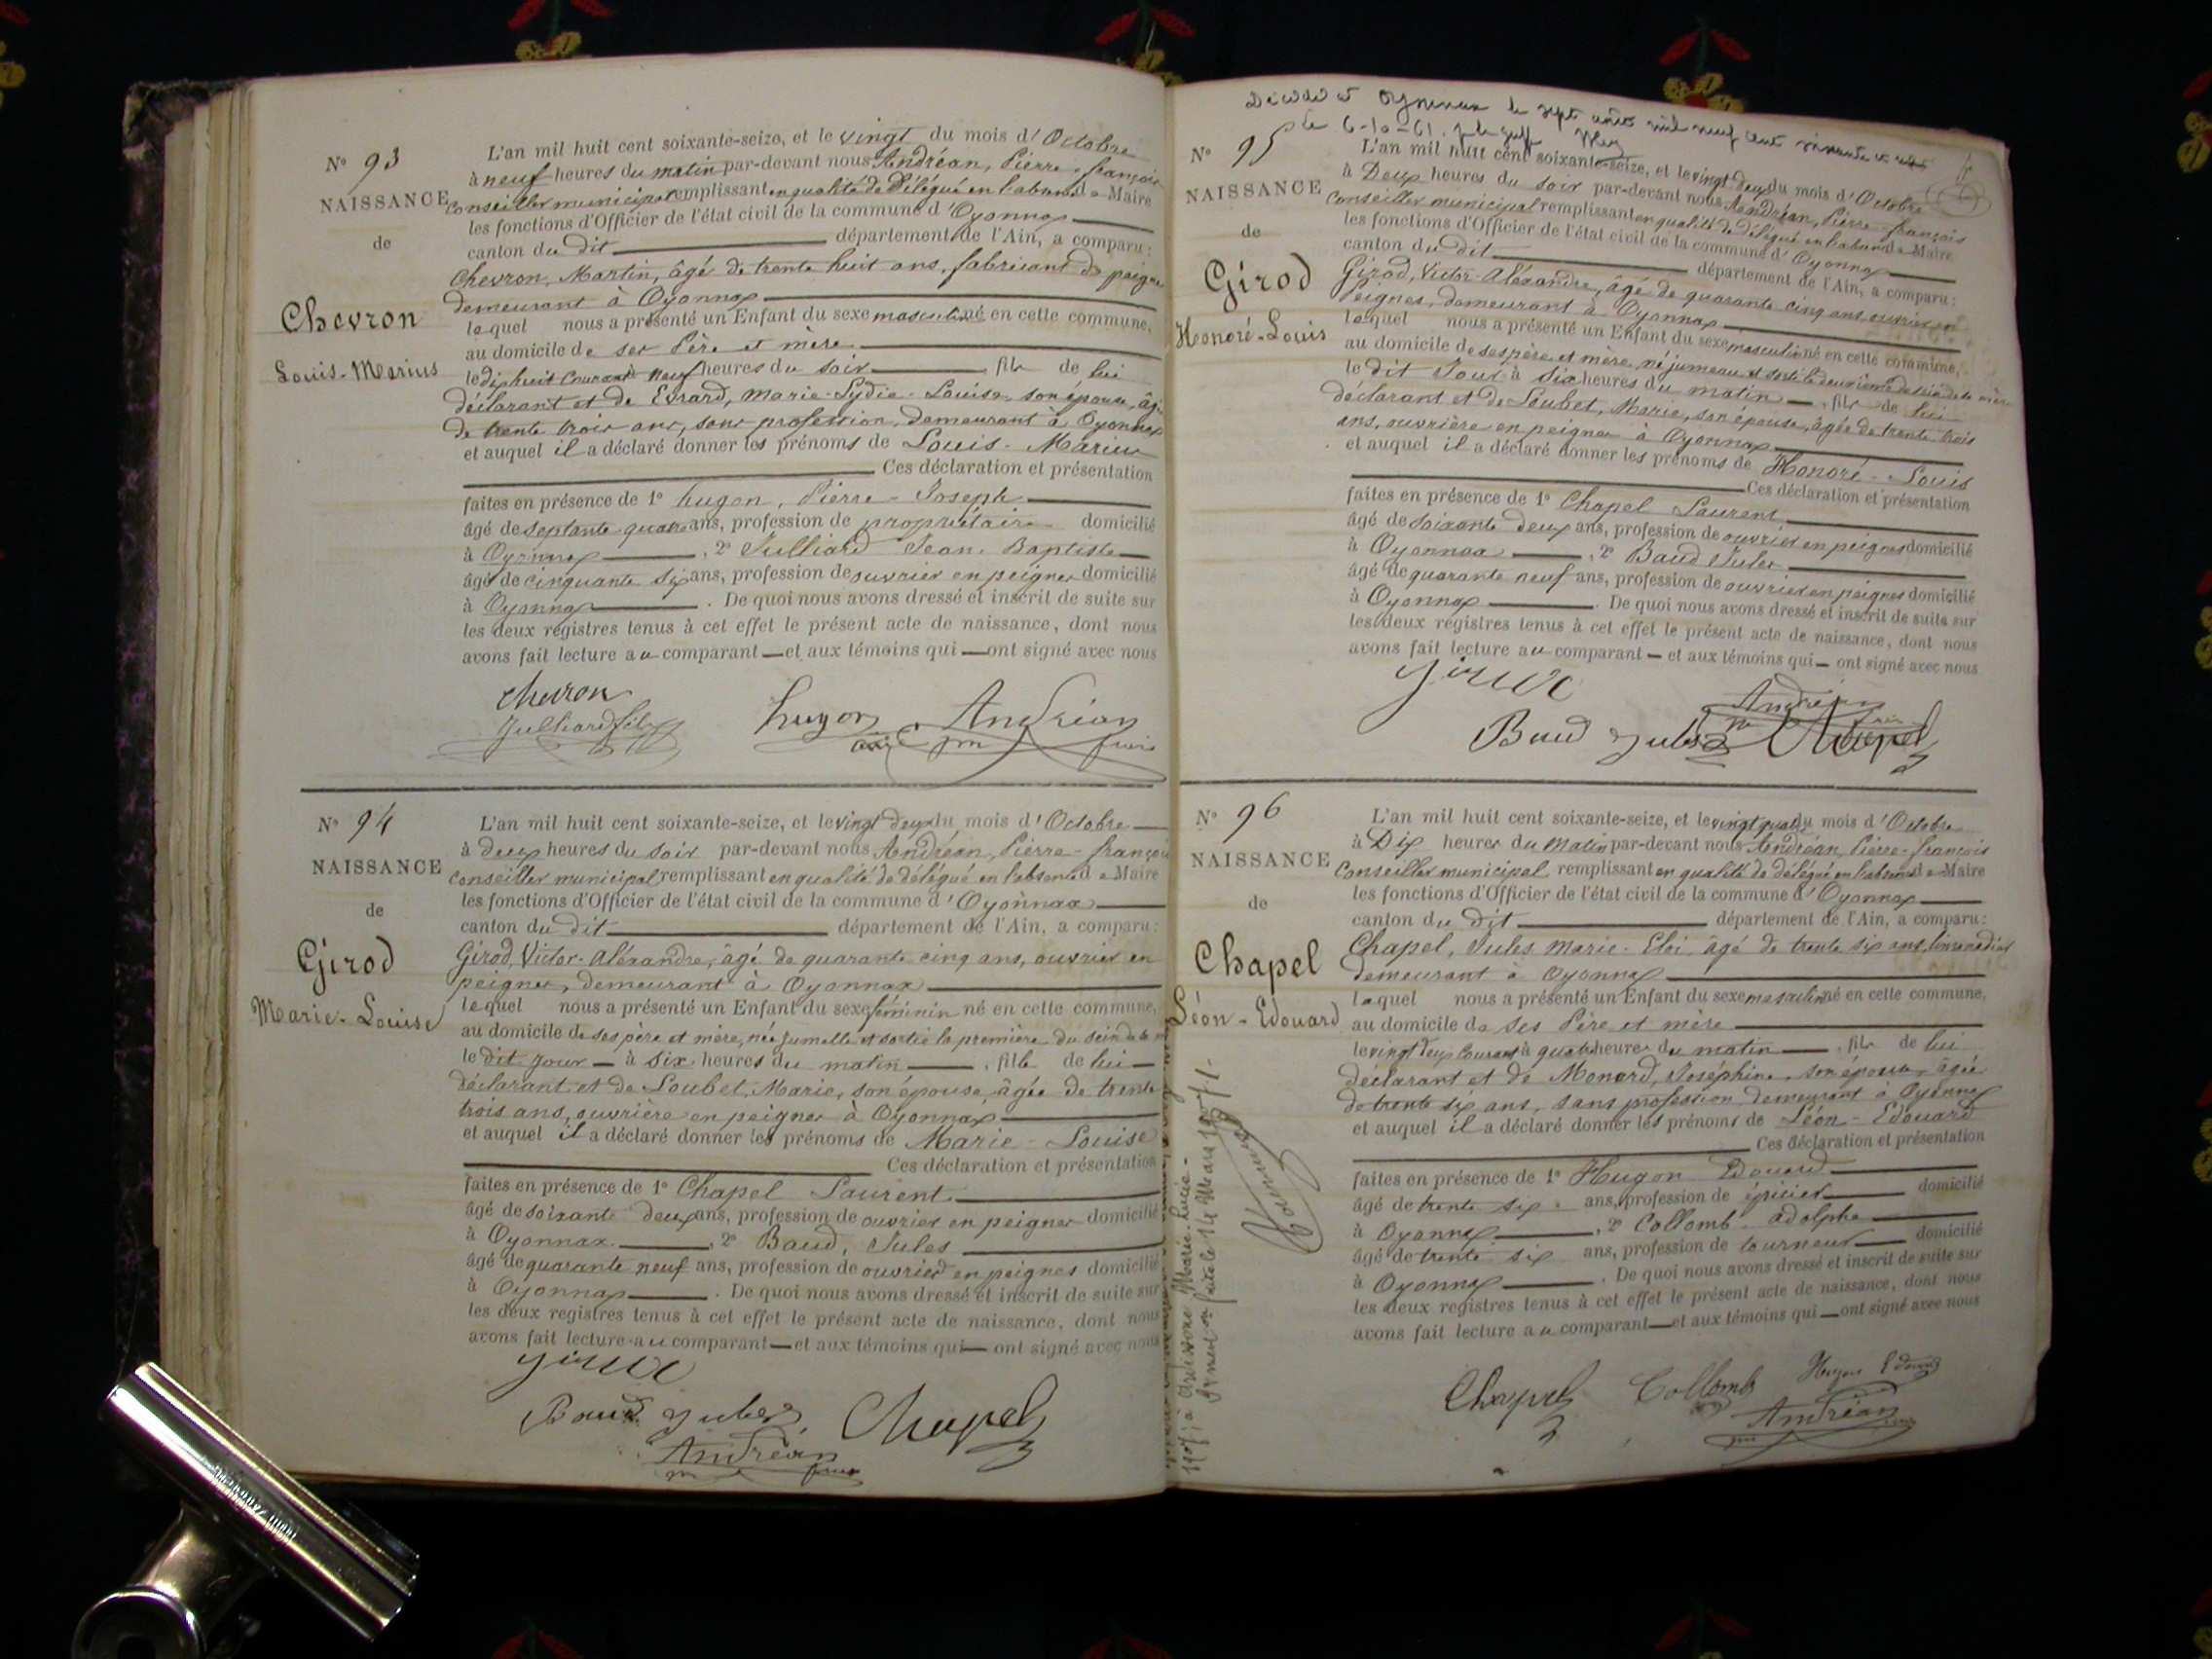 N° 93
NAISSANCE
de
Chevron
Louis-Marius
L'an mil huit cent soixante-seize, et le vingt du mois d'Octobre
à neuf heures du matin par-devant nous Andréan, Pierre-françois
Conseiller municipal remplissant en qualité de Délégué en l'absence de Maire
les fonctions d'Officier de l'état civil de la commune d'Oyonnax
canton du dit département de l'Ain, a comparu:
Chevron, Martin, âgé de trente huit ans, fabricant de peignes
demeurant à Oyonnax
lequel nous a présenté un Enfant du sexe masculin né en cette commune,
au domicile de ses Père et mère
le dix huit Courant à neuf heures du soir fils de lui
déclarant et de Evrard, Marie-Lydie-Louise, son épouse, âgée
de trente trois ans, sans profession, demeurant à Oyonnax
et auquel il a déclaré donner les prénoms de Louis-Marius
Ces déclaration et présentation
faites en présence de 1° hugon, Pierre-Joseph
âgé de septante quatre ans, profession de propriétaire domicilié
à Oyonnax, 2° Julliard Jean-Baptiste
âgé de cinquante six ans, profession de ouvrier en peignes domicilié
à Oyonnax. De quoi nous avons dressé et inscrit de suite sur
les deux registres tenus à cet effet le présent acte de naissance, dont nous
avons fait lecture au comparant et aux témoins qui ont signé avec nous
chevron
Julliard fils hugon Andréan
N° 94
NAISSANCE
de
Girod
Marie-Louise
L'an mil huit cent soixante-seize, et le vingt deux du mois d'Octobre
à deux heures du soir par-devant nous Andréan, Pierre-françois
Conseiller municipal remplissant en qualité de délégué en l'absence de Maire
les fonctions d'Officier de l'état civil de la commune d'Oyonnax
canton du dit département de l'Ain, a comparu:
Girod, Victor-Alexandre, âgé de quarante cinq ans, ouvrier en
peignes, demeurant à Oyonnax
lequel nous a présenté un Enfant du sexe féminin né en cette commune,
au domicile de ses père et mère, née jumelle et sortie la première du sein de la
le dit jour à six heures du matin, fille de lui
déclarant et de Loubet, Marie, son épouse, âgée de trente
trois ans, ouvrière en peignes à Oyonnax
et auquel il a déclaré donner les prénoms de Marie-Louise
Ces déclaration et présentation
faites en présence de 1° Chapel Laurent
âgé de soixante deux ans, profession de ouvrier en peignes domicilié
à Oyonnax, 2° Baud, Jules
âgé de quarante neuf ans, profession de ouvrier en peignes domicilié
à Oyonnax. De quoi nous avons dressé et inscrit de suite sur
les deux registres tenus à cet effet le présent acte de naissance, dont nous
avons fait lecture au comparant et aux témoins qui ont signé avec nous
Girod
Baud Jules Chapel
Andréan
Décédé à Oyonnax le sept août mil neuf cent soixante et
Le 6-10-61
N° 95
NAISSANCE
de
Girod
Honoré-Louis
L'an mil huit cent soixante-seize, et le vingt deux du mois d'Octobre
à Deux heures du soir par-devant nous Andréan, Pierre-françois
Conseiller municipal remplissant en qualité de délégué en l'absence de Maire
les fonctions d'Officier de l'état civil de la commune d'Oyonnax
canton du dit département de l'Ain, a comparu:
Girod, Victor-Alexandre, âgé de quarante cinq ans ouvrier en
Peignes, demeurant à Oyonnax
lequel nous a présenté un Enfant du sexe masculin né en cette commune,
au domicile de ses père et mère, né jumeau et sorti le deuxième du sein de la mère
le dit Jour à six heures du matin, fils de lui
déclarant et de Loubet, Marie, son épouse, âgée de trente trois
ans, ouvrière en peignes à Oyonnax
et auquel il a déclaré donner les prénoms de Honoré-Louis
Ces déclaration et présentation
faites en présence de 1° Chapel Laurent
âgé de soixante deux ans, profession de ouvrier en peignes domicilié
à Oyonnax, 2° Baud Jules
âgé de quarante neuf ans, profession de ouvrier en peignes domicilié
à Oyonnax. De quoi nous avons dressé et inscrit de suite sur
les deux registres tenus à cet effet le présent acte de naissance, dont nous
avons fait lecture au comparant et aux témoins qui ont signé avec nous
Girod
Andréan
Baud Jules Chapel
N° 96
NAISSANCE
de
Chapel
Léon-Edouard
L'an mil huit cent soixante-seize, et le vingt quatre du mois d'Octobre
à Dix heures du Matin par-devant nous Andréan, Pierre-françois
Conseiller municipal remplissant en qualité de délégué en l'absence de Maire
les fonctions d'Officier de l'état civil de la commune d'Oyonnax
canton du dit département de l'Ain, a comparu:
Chapel, Jules Marie-Eloi, âgé de trente six ans, limonadier
demeurant à Oyonnax
lequel nous a présenté un Enfant du sexe masculin né en cette commune,
au domicile de ses Père et mère
le vingt deux Courant à quatre heures du matin, fils de lui
déclarant et de Monard, Joséphine, son épouse, âgée
de trente six ans, sans profession demeurant à Oyonnax
et auquel il a déclaré donner les prénoms de Léon-Edouard
Ces déclaration et présentation
faites en présence de 1° Hugon Edouard
âgé de trente six ans, profession de épicier domicilié
à Oyonnax, 2° Collomb adolphe
âgé de trente six ans, profession de tourneur domicilié
à Oyonnax. De quoi nous avons dressé et inscrit de suite sur
les deux registres tenus à cet effet le présent acte de naissance, dont nous
avons fait lecture au comparant et aux témoins qui ont signé avec nous
Chapel Collomb Hugon Edouard
Andréan
Marie-Lucie